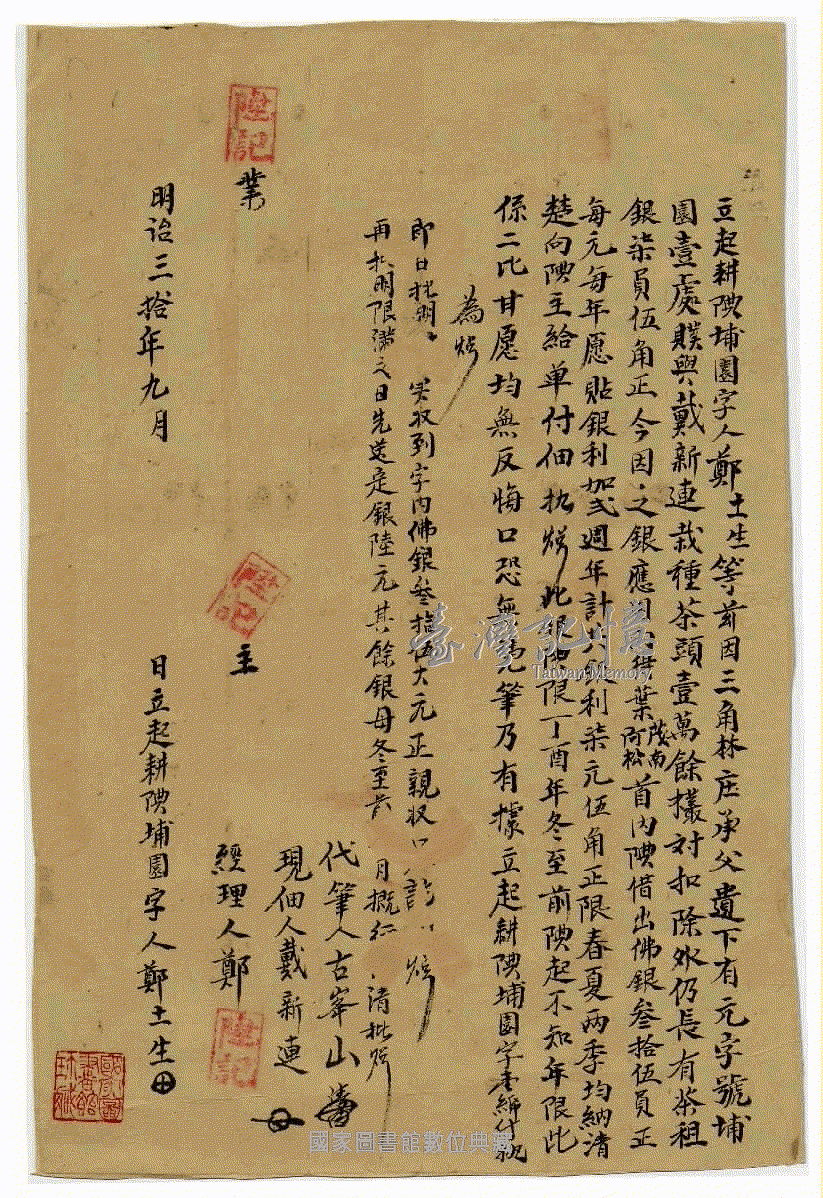 立起耕腆埔園字人鄭土生等前因三角林庄承父遺下有元字號埔
園壹處贌與戴新連栽種茶頭壹萬餘欉対扣除外仍長有茶租
銀柒員伍角正今因之銀應用葉茂南阿松首內腆借出佛銀叁拾伍員正
每元每年愿貼銀利加弍週年計共銀利柒元伍角正限春夏兩季均納清
楚向腆主給單付佃执炤此銀腆限丁酉年冬至前腆起不知年限此
係二比甘愿均無反悔口恐無憑筆乃有據立起耕腆埔園字壹紙付執
為炤
即日批明實収到字內佛銀叁拾伍大元正親収炤
再批明限滿之日先送定銀陸元其餘銀母冬至 月概 清批炤
代筆人古峯山
現佃人戴新連
經理人鄭
陞記
業
陞記
主
陞記
明治三拾年九月
日立起耕腆埔園字人鄭土生
臺灣記憶
Taiwan Memory
國家圖書館數位典藏